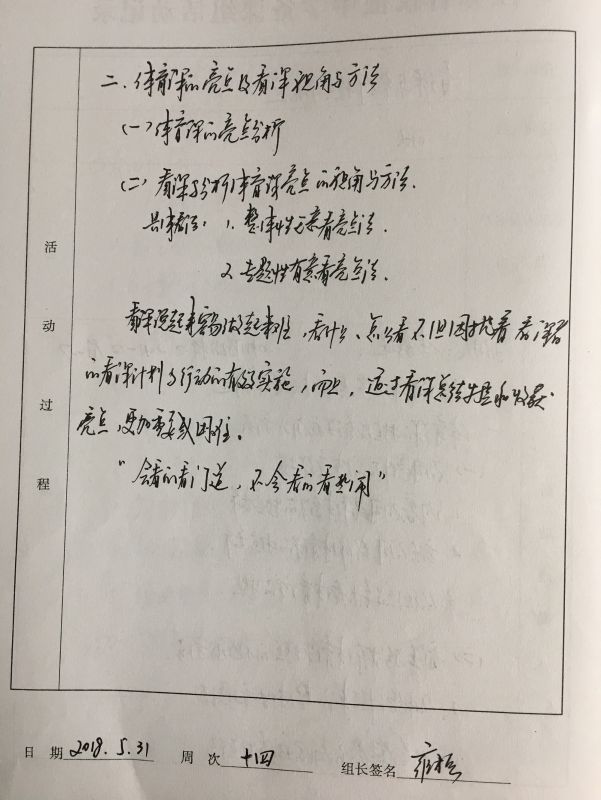 二、体育课的亮点及看课视角与方法
(一)体育课的亮点分析
(二)看课与分析体育课亮点的视角与方法.
具体看法: 1. 整体性无意看亮点法.
2. 专题性有意看亮点法.
看课说起来容易做起来难,看什么、怎么看不但困扰着看课者
的看课计划与行动的有效实施,而且,通过看课总结、和收获
亮点,更加重要或困难。
“会看的看门道,不会看的看热闹”
活
动
过
程
日 期 2018.5.31 周 次 十四 组长签名